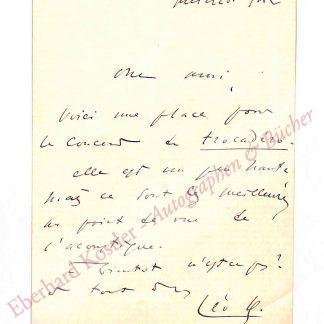 mercredi
Mon ami,
Voici une place pour
le concert du trocadéro.
elle est un peu haute
mais ce sont les meilleures
au point de vue de
l'acoustique.
Bientôt n'est ce pas?
et tout
Léo D.
Eberhard Köstler - Autographen & Bücher